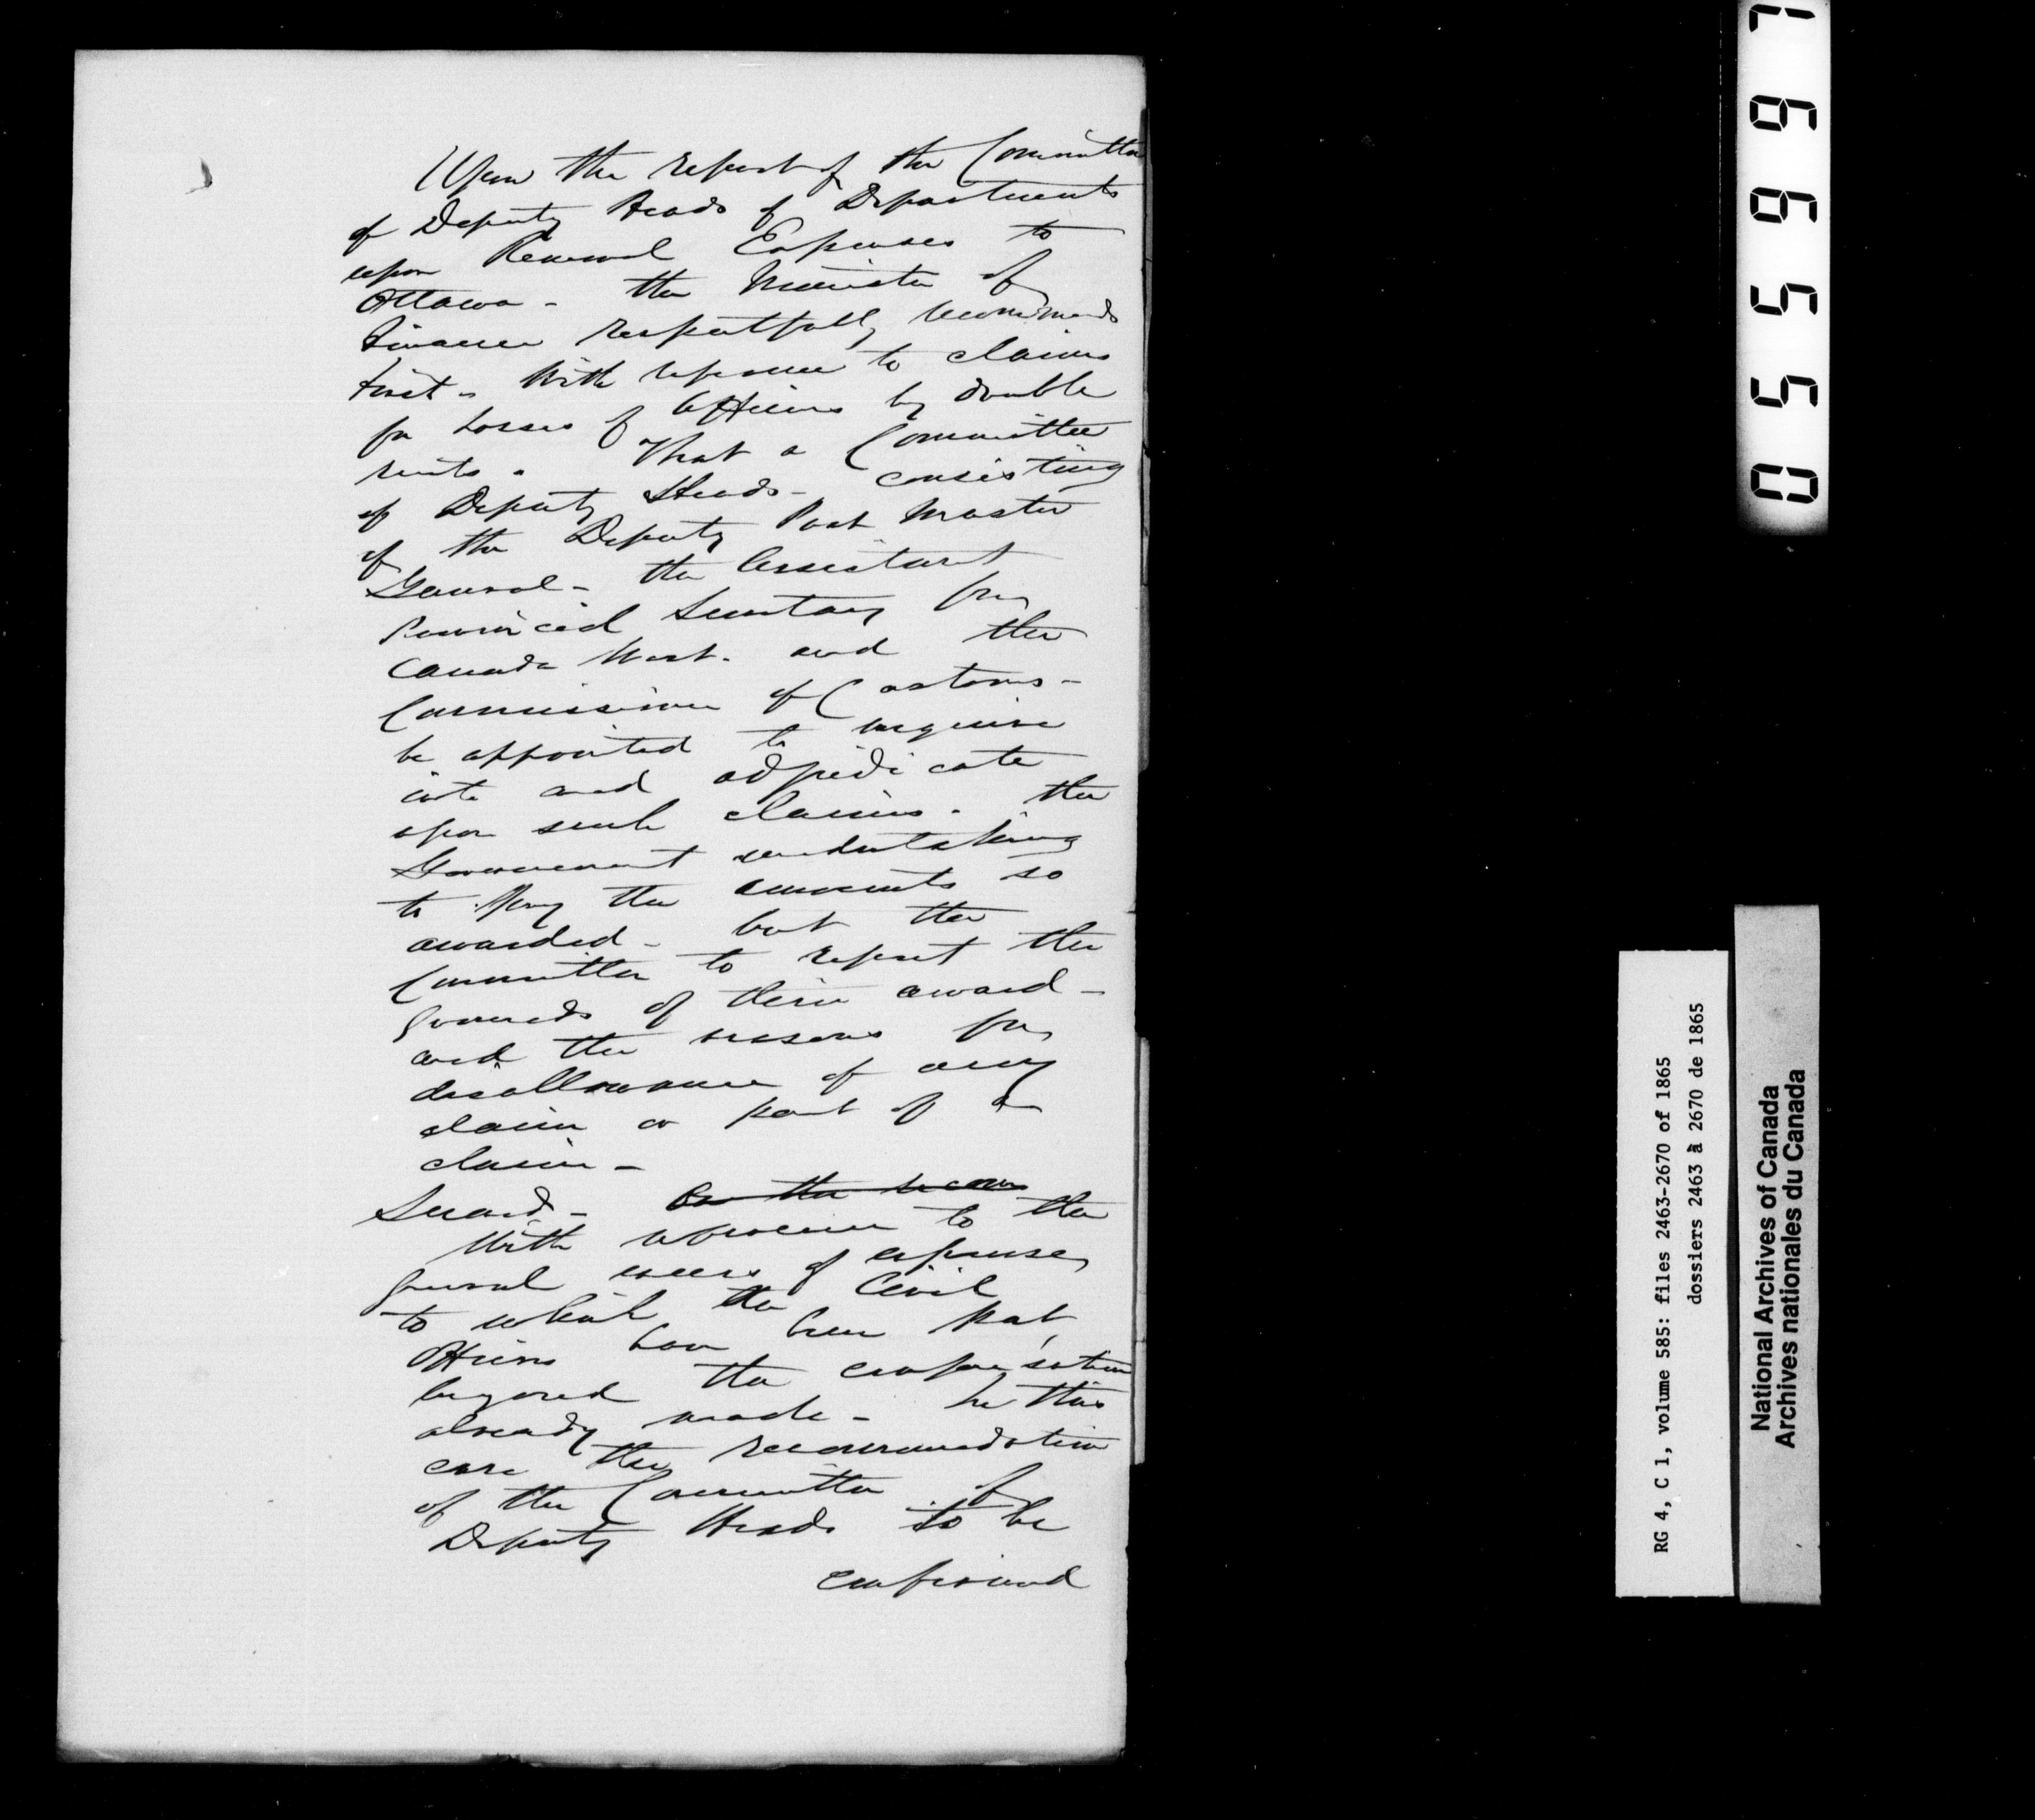 Upon the report of the Committee
of Deputy Heads of Departments
upon Removal Expenses to
Ottawa - the Minister of
Finance respectfully recommends
First - With reference to claims
for losses of Officers by double
rents - That a Committee
of Deputy Heads - consisting
of the Deputy Post Master
General - the Assistant
Provincial Secretary for
Canada West - and the
Commissioner of Customs -
be appointed to inquire
into and adjudicate
upon such claims - the
Government undertaking
to pay the amounts so
awarded - but the
Committee to report the
grounds of their award -
and the reasons for
disallowance of any
claim or part of a
claim -
Second - On the recom
With reference to the
general excess of expense,
to which the Civil
Officers have been put,
beyond the compensation
already made - he thus
case the recommendation
of the Committee of
Deputy Heads to be
confirmed
055997
RG 4, C 1, volume 585: files 2463-2670 of 1865
dossiers 2463 à 2670 de 1865
National Archives of Canada
Archives nationales du Canada